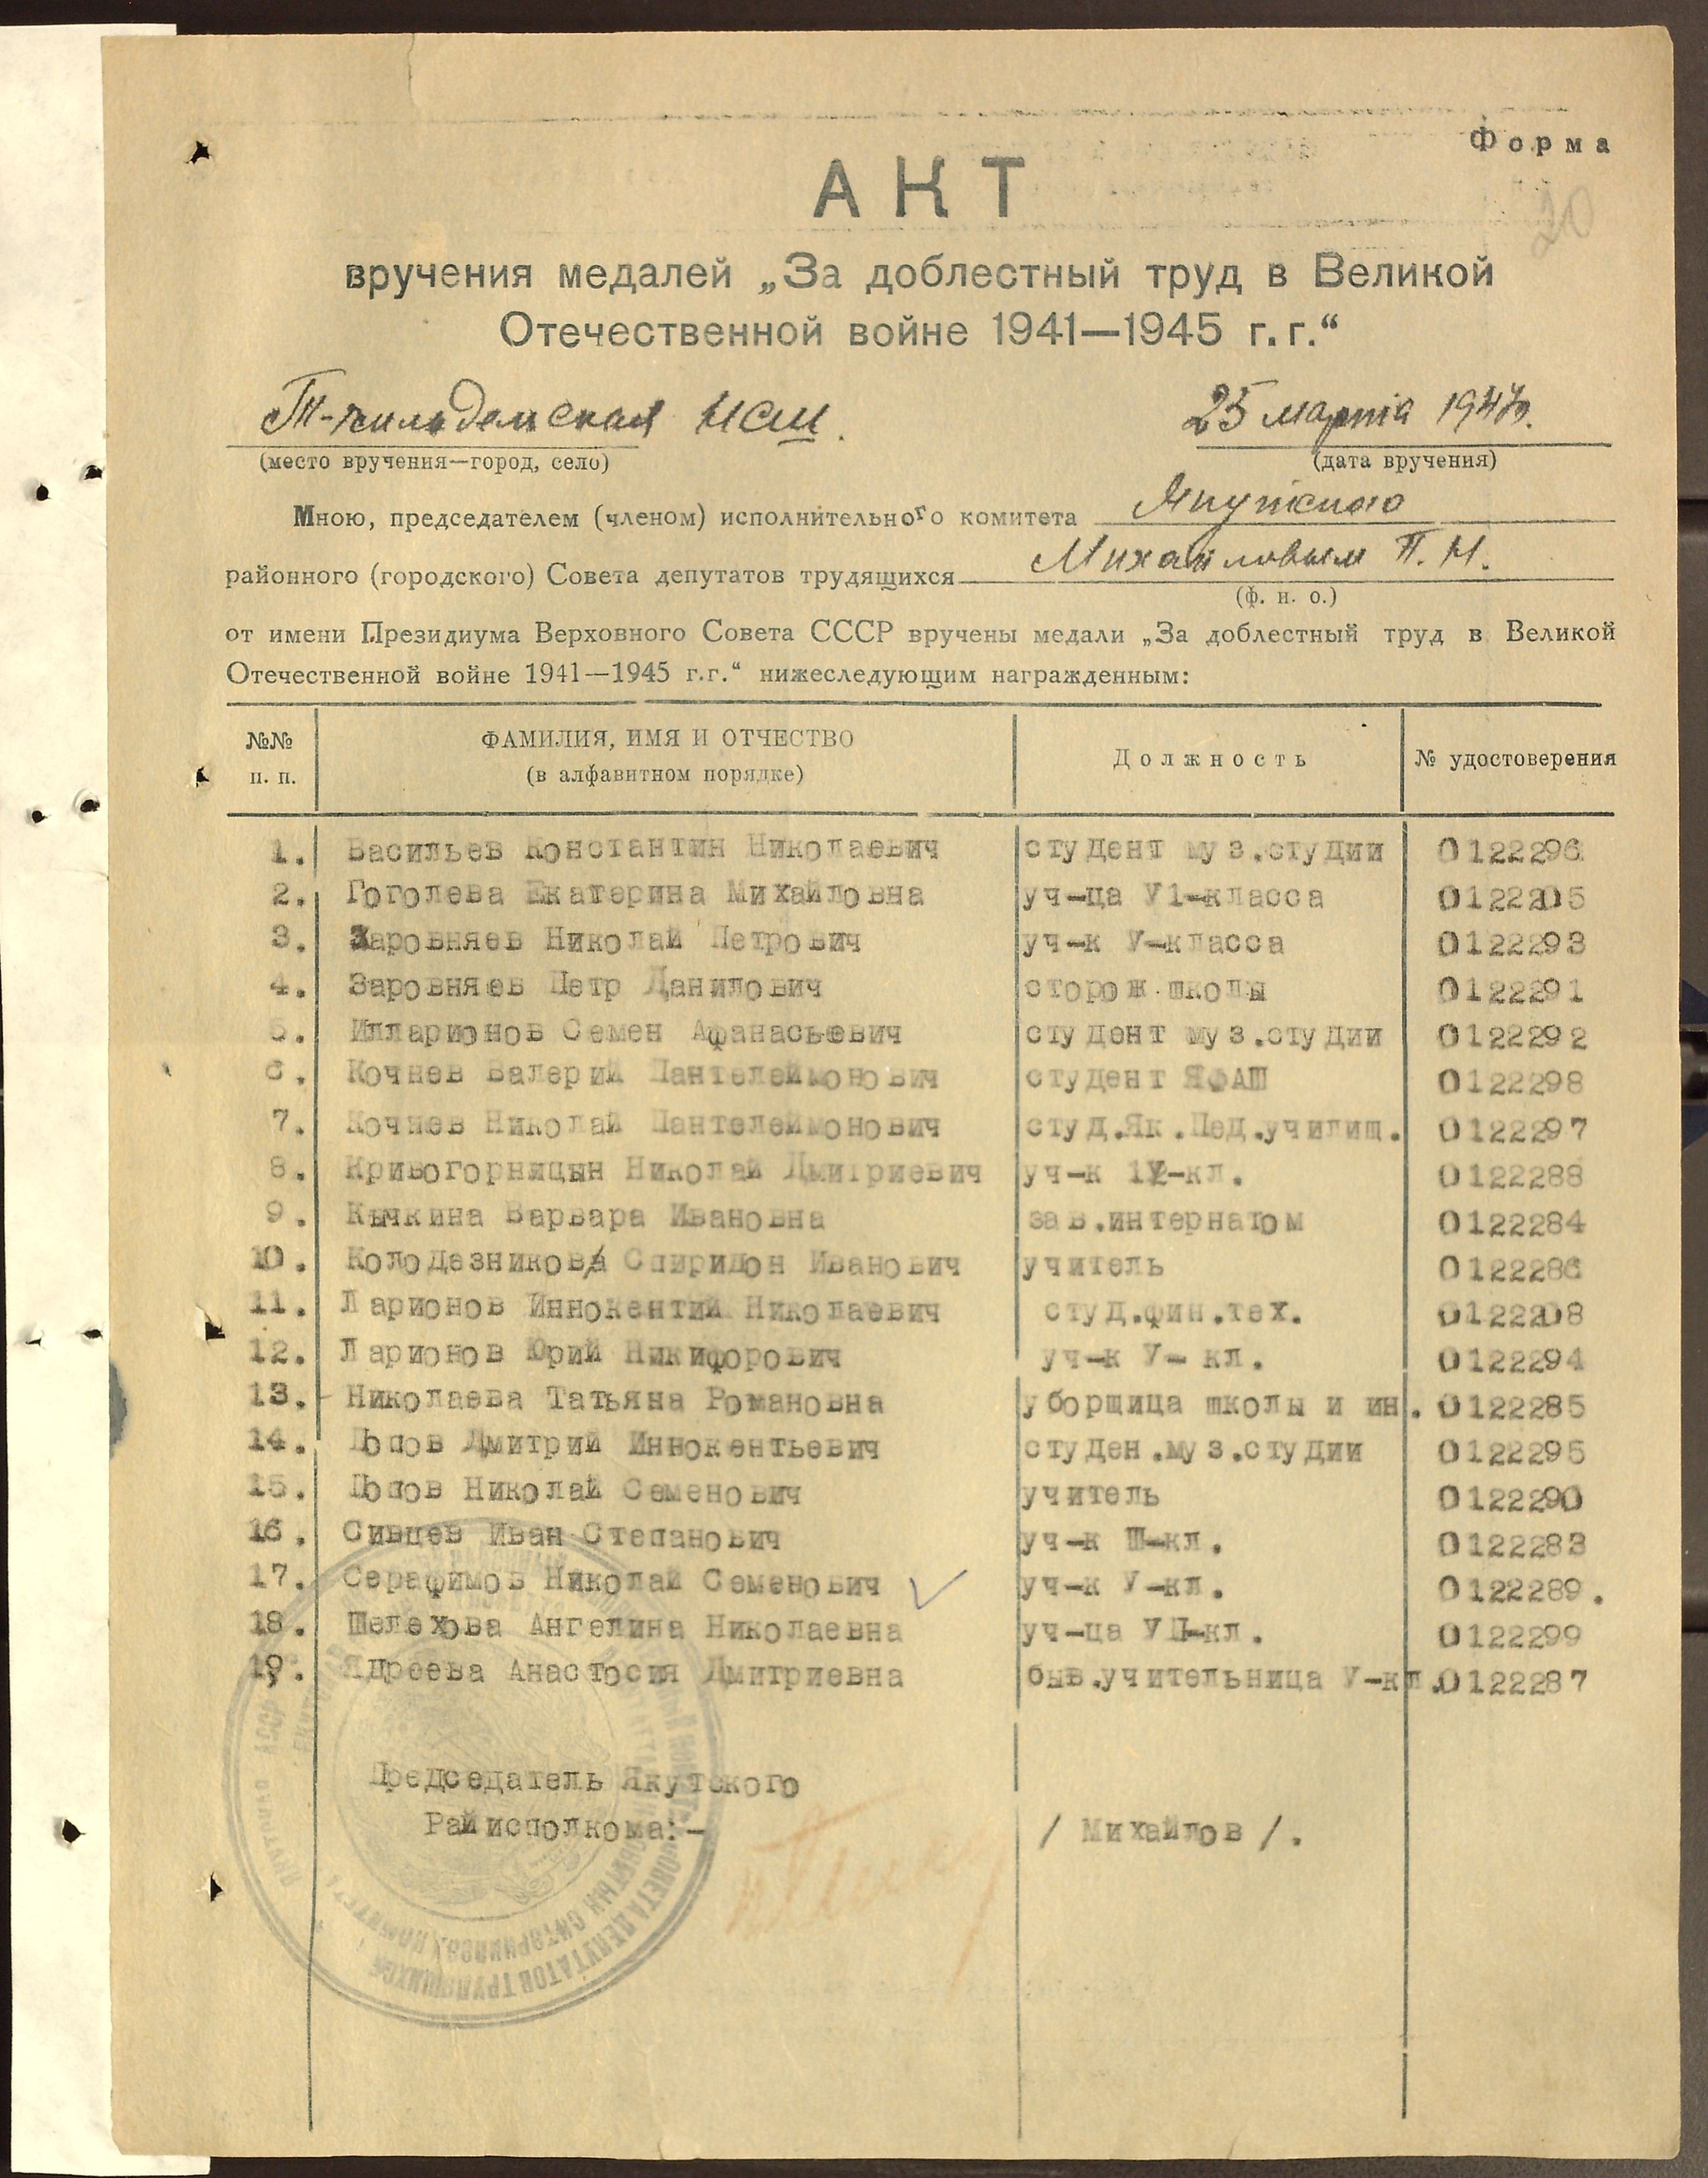 Форма
20
АКТ
вручения медалей „За доблестный труд в Великой
Отечественной войне 1941—1945 г.г.“
НСШ.
25 марта 1947г.
(место вручения—город, село)
(дата вручения)
Мною, председателем (членом) исполнительного комитета Якутского
районного (городского) Совета депутатов трудящихся Михайловым П. Н.
(ф. и. о.)
от имени Президиума Верховного Совета СССР вручены медали „За доблестный труд в Великой
Отечественной войне 1941—1945 г.г.“ нижеследующим награжденным:
№№ п. п. ФАМИЛИЯ, ИМЯ И ОТЧЕСТВО (в алфавитном порядке) Должность № удостоверения
1. Васильев Константин Николаевич студент муз.студии 0122296
2. Гоголева Екатерина Михайловна уч-ца У1-класса
3. Заровняев Николай Петрович уч-к У-класса 0122293
4. Заровняев Петр Данилович сторож школы 0122291
5. Илларионов Семен Афанасьевич студент муз.студии 0122292
6. Кочнев Валерий Пантелеймонович студент ЯФАШ 0122298
7. Кочнев Николай Пантелеймонович студ.Як.Пед.училищ. 0122297
8. Кривогорницын Николай Дмитриевич уч-к 0122288
9. Кычкина Варвара Ивановна зав.интернатом 0122284
10. Колодезников Спиридон Иванович учитель 0122286
11. Ларионов Иннокентий Николаевич студ.фин.тех.
12. Ларионов Юрий Никифорович уч-к У- кл. 0122294
13. Николаева Татьяна Романовна уборщица школы и ин. 0122285
14. Попов Дмитрий Иннокентьевич студен.муз.студии 0122295
15. Попов Николай Семенович учитель 0122290
16. Сивцев Иван Степанович уч-к Ш-кл. 0122283
17. Серафимов Николай Семенович уч-к У-кл. 0122289.
18. Шелехова Ангелина Николаевна уч-ца УП-кл. 0122299
19. Ядреева Анастосия Дмитриевна быв.учительница У-кл. 0122287
Председатель Якутского
Райисполкома:- / Михайлов /.